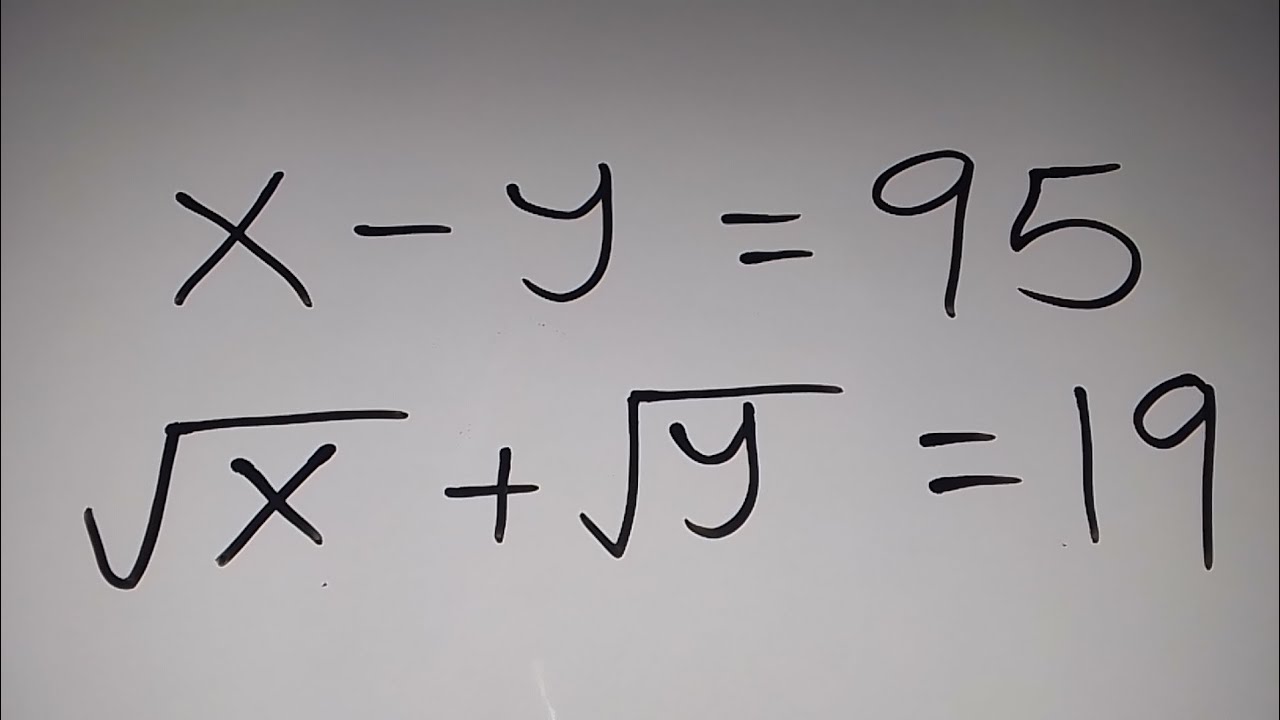 x - y = 95
√x + √y = 19